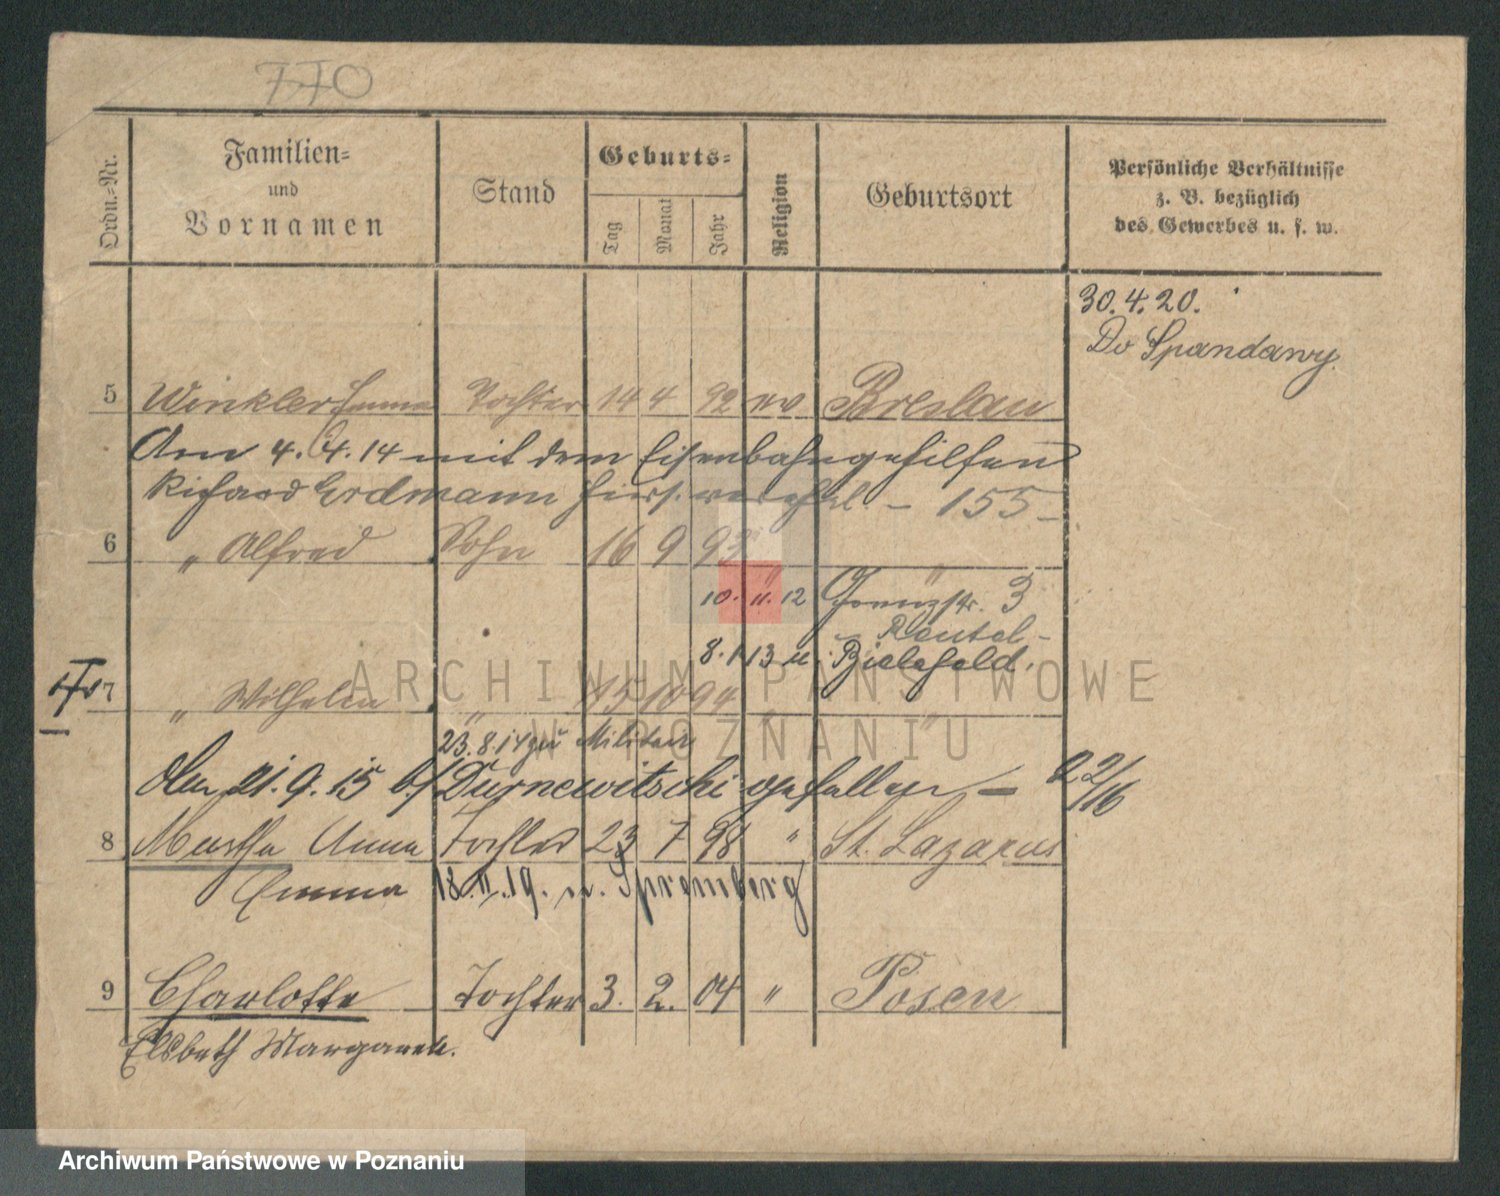 770
Ordn.-Nr.
Familien-
und
Vornamen
Stand
Geburts-
Tag
Monat
Jahr
Religion
Geburtsort
Persönliche Verhältnisse
z. B. bezüglich
des Gewerbes u. s. w.
30.4.20.
Do Spandawy.
5 Winkler Emma Tochter 14 4 92 ev Breslau
Am 4.4.14 mit dem Eisenbahngehilfen
Richard Erdmann hiers. verehel. – 155 –
6 „ Alfred Sohn 16 9 93 „ „
10. 11. 12 Grenzstr. 3
8. 1. 13 n. Bielefeld.
7 „ Wilhelm „ 15 10 94 „ „
23.8.14 zu Militair
Am 21.9.15 b/ Durnewitschi gefallen – 22/16
8 Martha Anna Tochter 23 7 98 „ St. Lazarus
Emma 18.11.19. n. Spremberg
9 Charlotte Tochter 3. 2. 04 „ Posen
Elsbeth Margareth.
ARCHIWUM PAŃSTWOWE
W POZNANIU
Archiwum Państwowe w Poznaniu